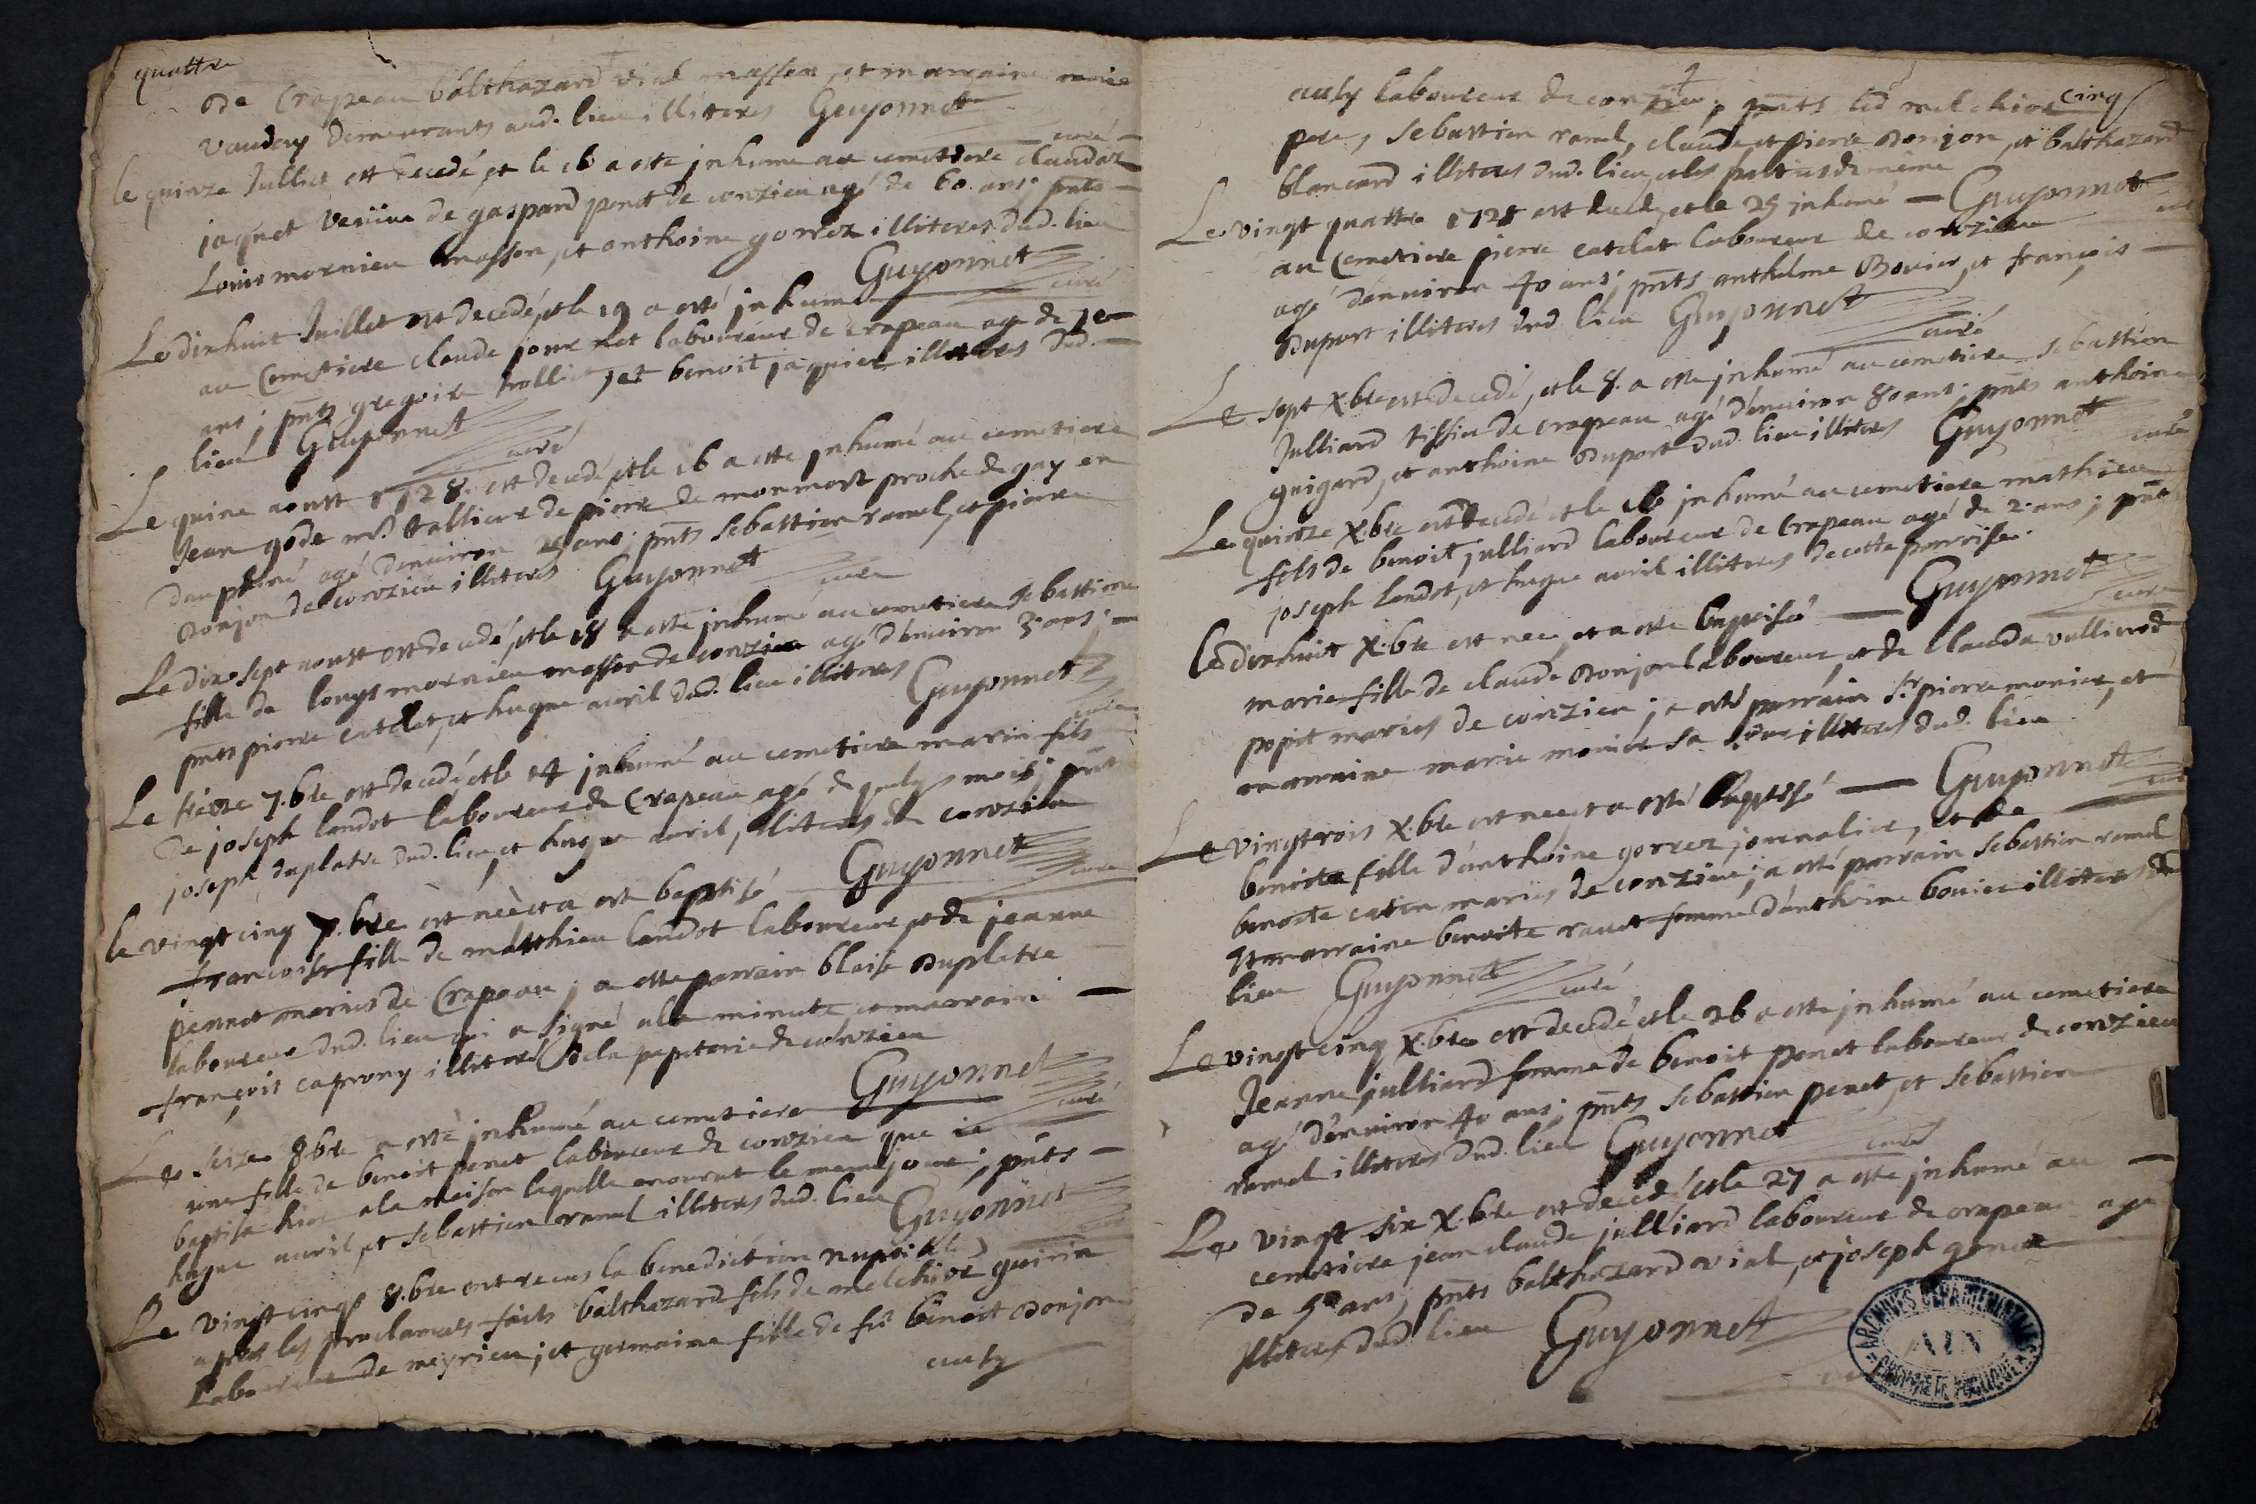 quattre
de Crapeau balthazard vial masson, et marraine marie
vaudey demeurants aud. lieu illiteres Guyonnet curé
le quinze Julliet est decedé, et le 16 a esté inhumé au cemettiere claudaz
jaqnet veüve de gaspard penet de corvzieu agé de 60. ans; pnts
Louis mornieu masson, et anthoine gorrez illiteres dud. lieu
Guyonnet curé
Le dixhuit Juillet est decedé, et le 19 a esté inhumé
au Cemetiere claude journet laboureur de crapeau agé de
ans; pnts gregoire trolliet, et benoit jaquier illiteres dud.
lieu Guyonnet curé
Le quine aoust 1728. est decedé, et le 16 a esté inhumé au cemetiere
Jean gode mr. tallieur de pierre de monmort proche de gay en
dauphiné agé d'environ ans. pnts sebastien ramel, et pierre
donjon de corvzieu illiteres Guyonnet curé
Le dix sept aoust est decedé, et le 18 a esté inhumé au cemetiere sebastiene
fille de louys mornieu masson de corvzieu agé d'environ 3. ans;
pnts pierre catelat, et hugue avril dud. lieu illiteres Guyonnet curé
Le treize 7.bre est decedé et le 14 inhumé au cemetiere marin fils
de joseph landot laboureur de Crapeau agé de quelqs mois; pnts
joseph duplatre dud. lieu, et hugue avril, illiteres de corvzieu
Guyonnet curé
le vingt cinq 7.bre est néé et a esté baptisé
françoise fille de matthieu landot laboureur, et de jeanne
pennet mariés de Crapeau; a esté parrain blaise duplatre
laboureur dud. lieu qui a signé a la minute, et marraine
françoise caprony illitere de la papeterie de corvzieu
Guyonnet curé
Le seize 8.bre a esté inhumé au cemetiere
une fille de benoit penet laboureur de corvzieu que ie
baptisa hier a la maison laquelle mourut le meme jour; pnts
hugue avril, et sebastien ramel illiteres dud. lieu Guyonnet
Le vingt cinq 8.bre ont receus la benediction nuptiale
apres les proclamats faits balthazard fils de melchior guirin
laboureur de meyrieu; et germaine fille de fû benoit donjon
aussy
cinq
aussy laboureur de corvzieu; pnts led melchior
pere, sebastien ramel, claude et pierre donjon, et balthazard
blancard illiteres dud. lieu, et les parties de même
Guyonnet
Le vingt quattre 1728 est decedé, et le 25 inhumé
au cemetiere pierre catelat laboureur de corvzieu
agé d'environ 40 ans; pnts anthelme Bovier, et françois
duport illiteres dud. lieu Guyonnet curé
Le sept X.bre est decedé, et le 8. a esté inhumé au cemetiere sebastien
Julliard tissier de crapeau agé d'environ 80 ans; pnts anthoine
guigard, et anthoine duport dud. lieu illiteres Guyonnet curé
Le quintze X.bre est decedé et le 16 inhumé au cemetiere mathieu
fils de benoit julliard laboureur de Crapeau agé de 2. ans; pnts
joseph landot, et hugue avril illiteres de cette parroisse.
Guyonnet curé
Le dixhuit X.bre est née, et a esté baptisé
marie fille de claude donjon laboureur, et de clauda vullierod
popet mariés de corvzieu; a esté parrain sr. pierre monier, et
marraine marie monier sa illiteres dud. lieu.
Guyonnet
Le vingtrois X.bre est née et a esté baptisé
benoite fille d'anthoine gorrez journalier, et de
benoite catin mariés de corvzieu; a esté parrain sebastien ramel
et marraine benoite ravet femme d'anthoine bovier illiteres dud
lieu Guyonnet curé
Le vingt cinq X.bre est decedé et le 26 a esté inhumé au cemetiere
Jeanne julliard femme de benoit penet laboureur de corvzieu
agé d'environ 40 ans; pnts sebastien penet, et sebastien
ramel illiteres dud. lieu Guyonnet curé
Le vingt six X.bre est decedé, et le 27 a esté inhumé au
cemetiere jean claude julliard laboureur de crapeau agé
de ans; pnts balthazard vial, et joseph
illiteres dud. lieu Guyonnet
ARCHIVES DEPARTEMENTALES
AIN
PROPRIETE PUBLIQUE